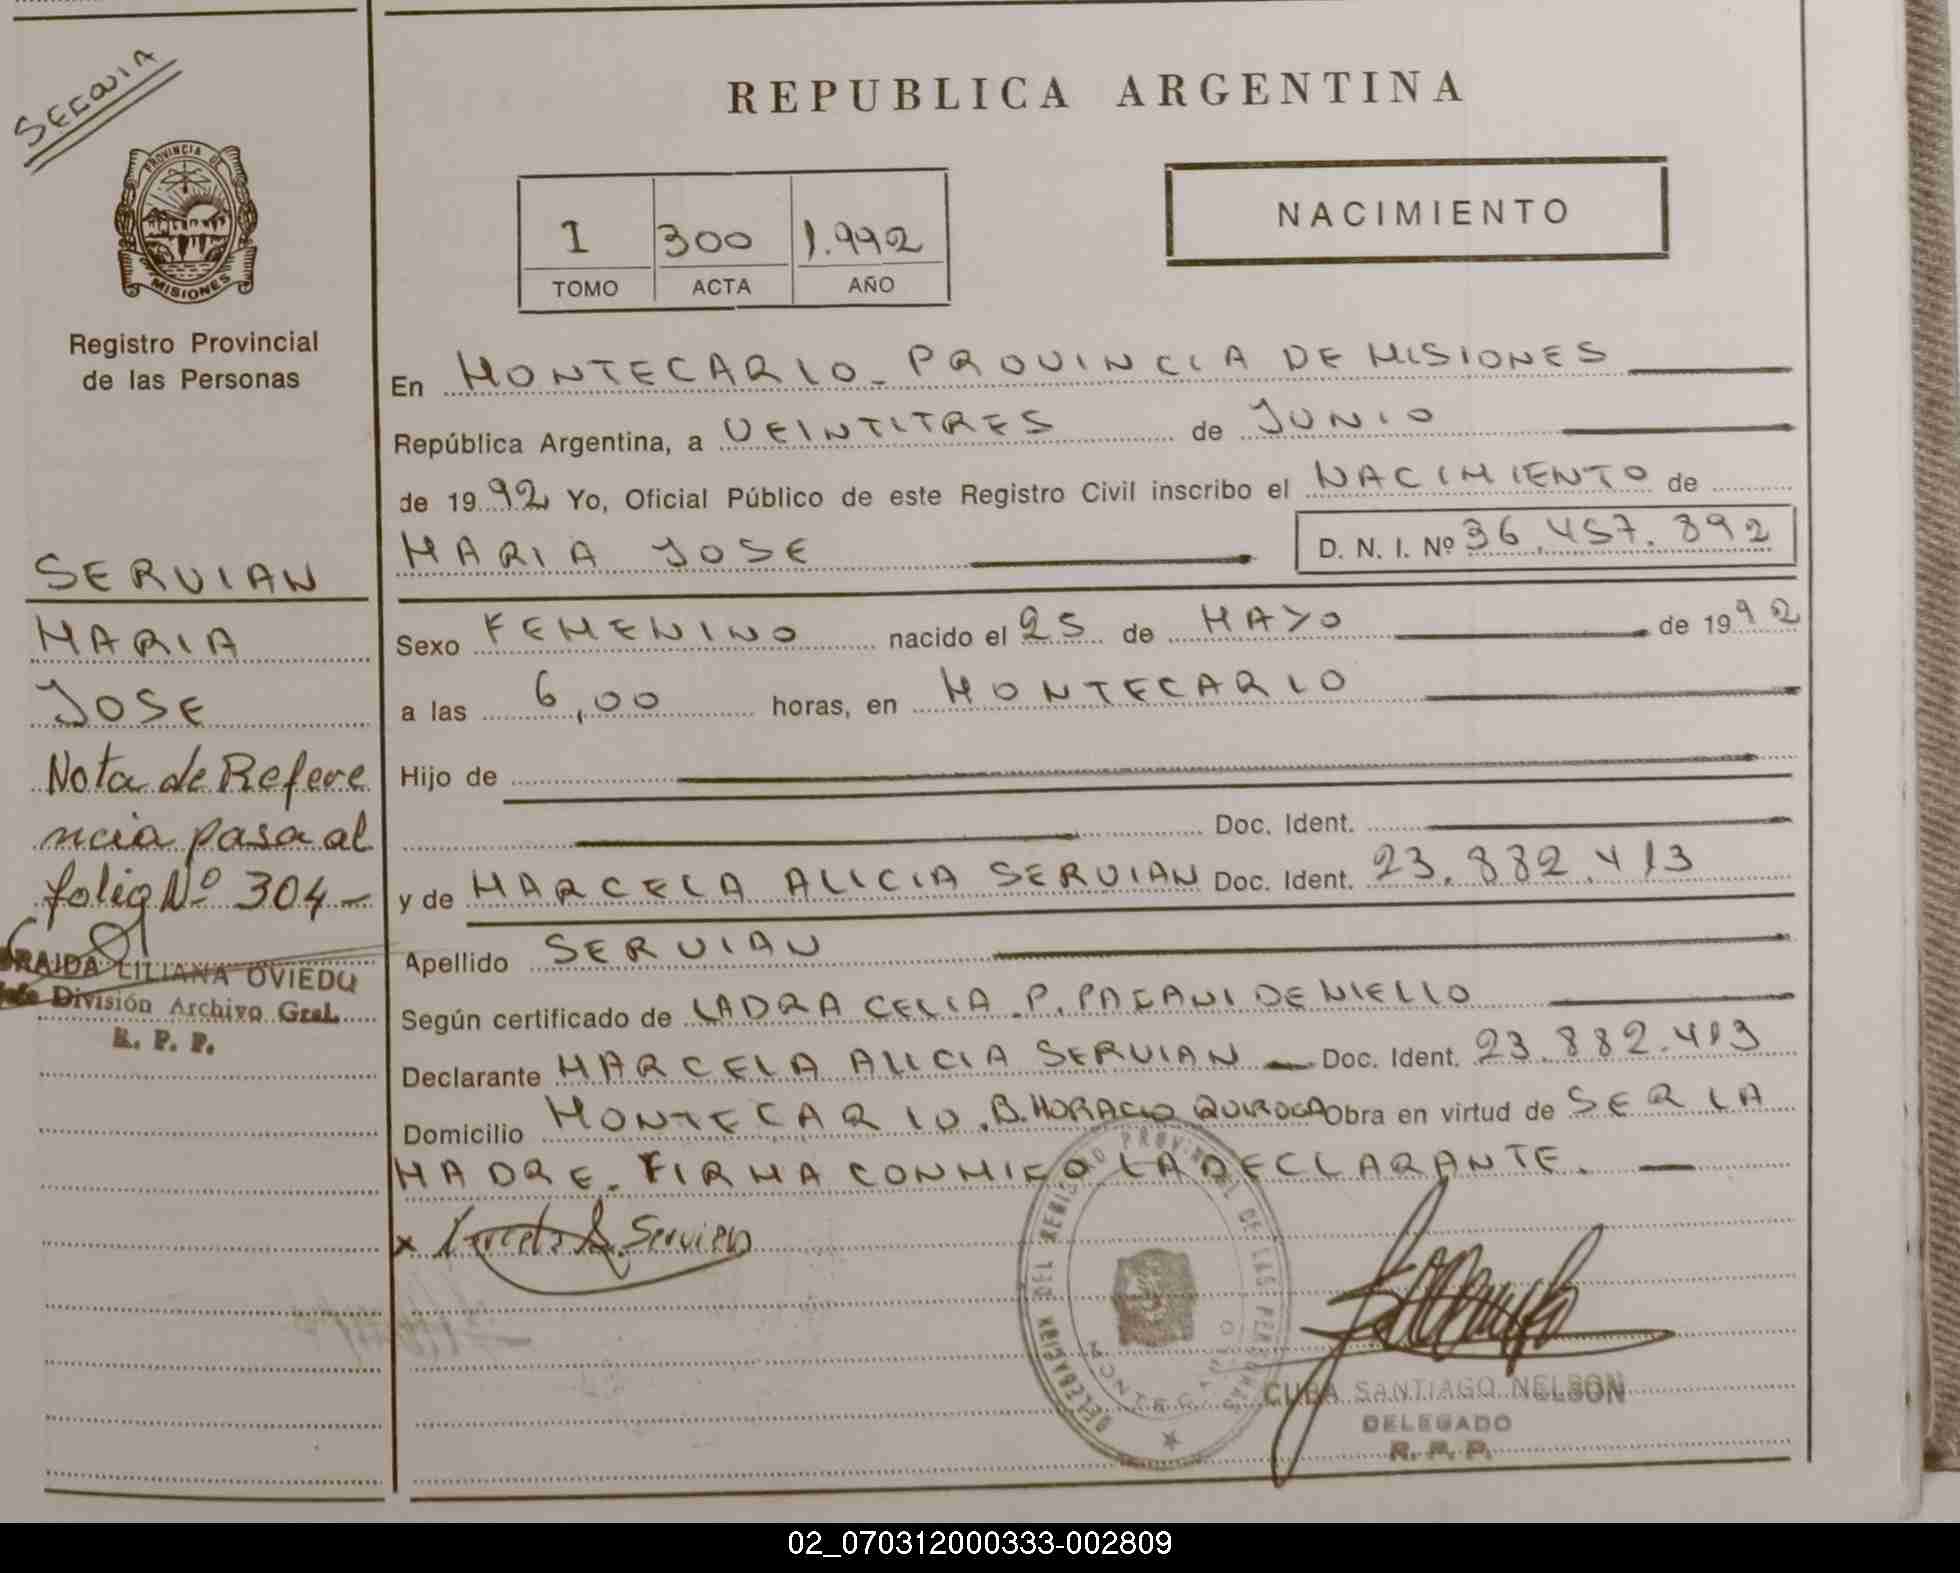 SERVIA
REPUBLICA ARGENTINA
PROVINCIA DE
MISIONES
Registro Provincial
de las Personas
1 300 1.992
TOMO ACTA AÑO
NACIMIENTO
En MONTECARLO - PROVINCIA DE MISIONES
República Argentina, a VEINTITRES de JUNIO
de 1992 Yo, Oficial Público de este Registro Civil inscribo el NACIMIENTO de
MARIA JOSE D. N. I. Nº 36.457.892
SERVIAN
MARIA
JOSE
Nota de Refere
ncia pasa al
folio Nº 304-
LILIANA OVIEDO
División Archivo Gral.
R. P. P.
Sexo FEMENINO nacido el 25 de MAYO de 1992
a las 6,00 horas, en MONTECARLO
Hijo de
Doc. Ident.
y de MARCELA ALICIA SERVIAN Doc. Ident. 23.882.413
Apellido SERVIAN
Según certificado de LA DRA CELIA P. PAGANI DE NIELLO
Declarante MARCELA ALICIA SERVIAN - Doc. Ident. 23.882.413
Domicilio MONTECARLO. B. HORACIO QUIROGA Obra en virtud de SER LA
MADRE. FIRMA CONMIGO LA DECLARANTE. -
x Marcela A. Servian
DELEGACION DEL REGISTRO PROVINCIAL DE LAS PERSONAS
MONTECARLO
CUBA SANTIAGO NELSON
DELEGADO
R. P. P.
02_070312000333-002809